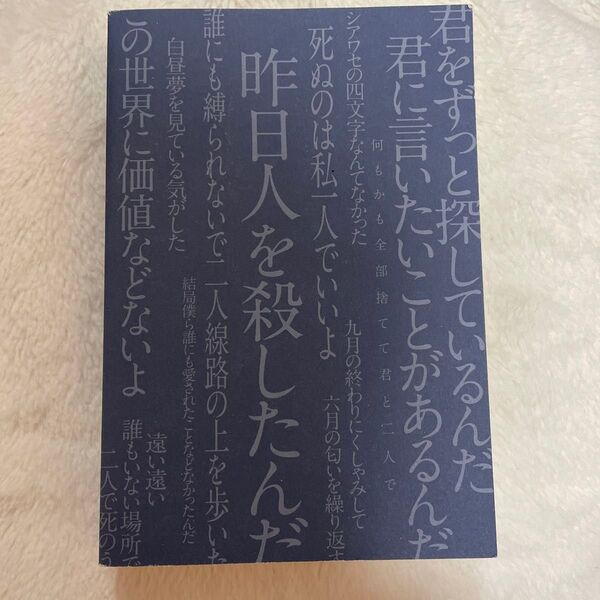 君をずっと探しているんだ
君に言いたいことがあるんだ
何もかも全部捨てて君と二人で
シアワセの四文字なんてなかった
九月の終わりにくしゃみして
六月の匂いを繰り返す
死ぬのは私一人でいいよ
昨日人を殺したんだ
誰にも縛られないで二人線路の上を歩いた
結局僕ら誰にも愛されたことなどなかったんだ
白昼夢を見ている気がした
この世界に価値などないよ
遠い遠い
誰もいない場所で
二人で死のう